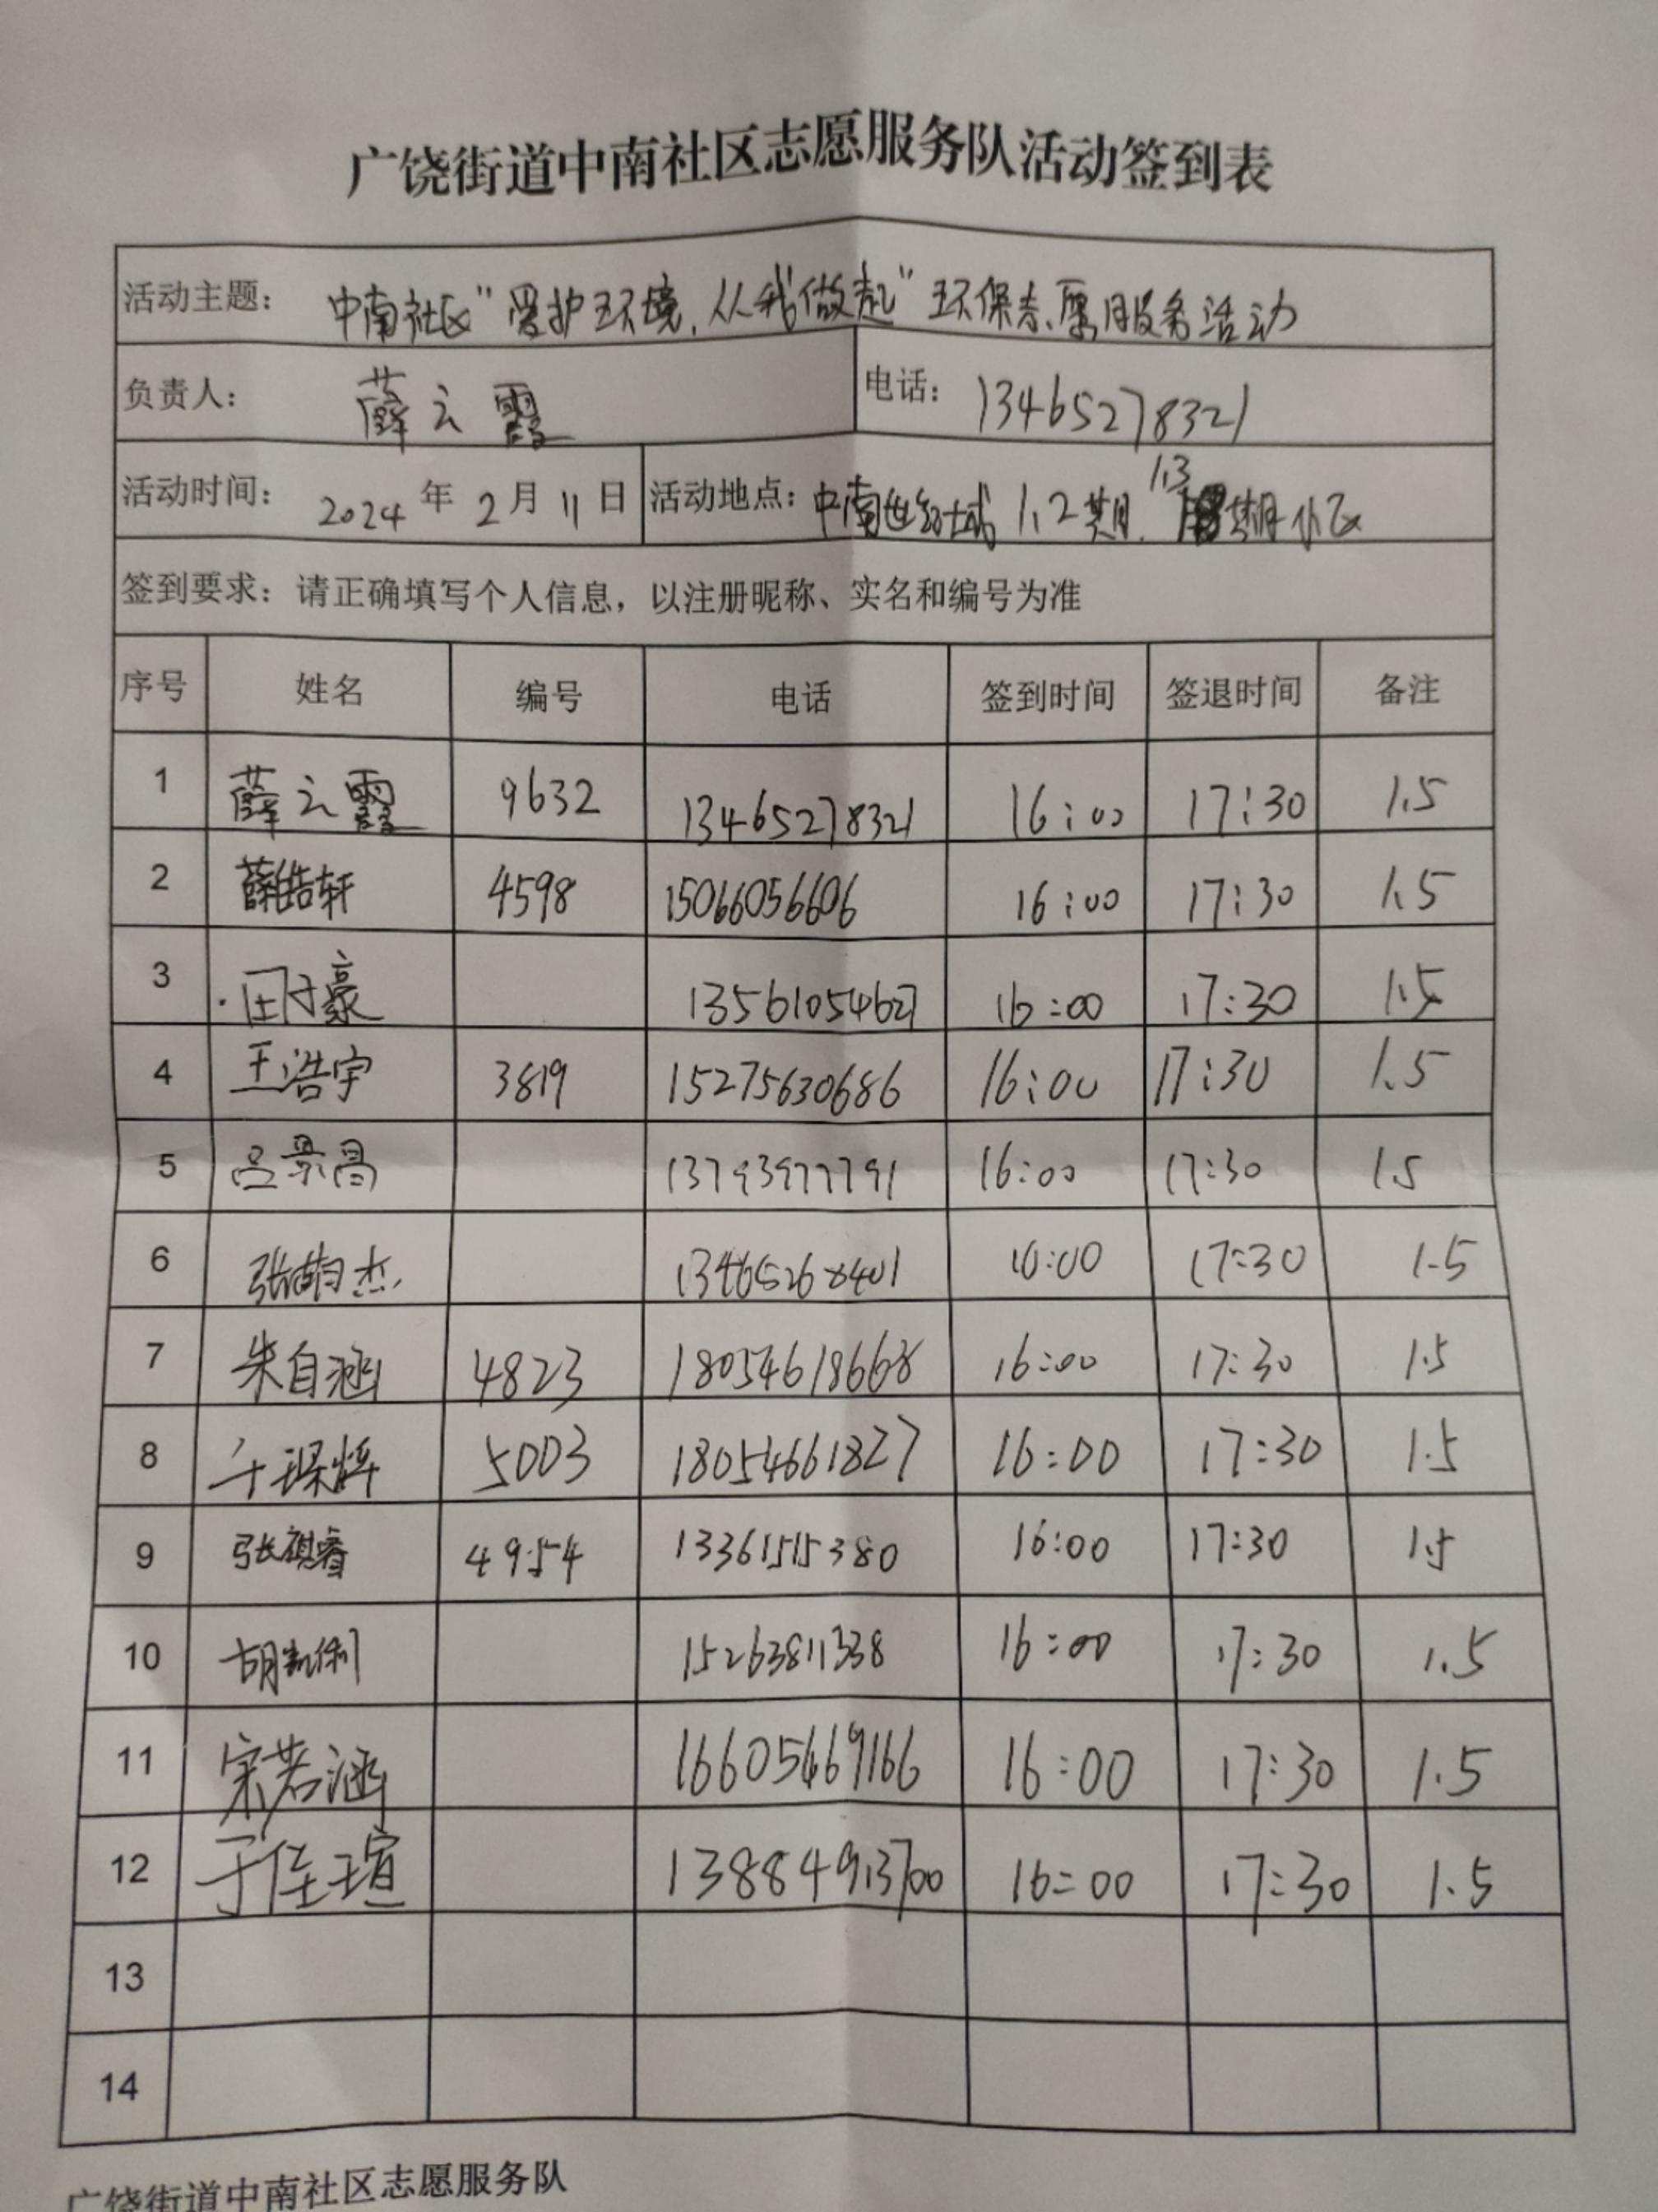 广饶街道中南社区志愿服务队活动签到表
活动主题： 中南社区"爱护环境，从我做起"环保志愿服务活动
负责人： 薛云霞 电话： 13465278321
活动时间： 2024 年 2 月 11 日 活动地点：中南世纪城 1、2期、 13 期小区
签到要求：请正确填写个人信息，以注册昵称、实名和编号为准
序号 姓名 编号 电话 签到时间 签退时间 备注
1 薛云霞 9632 13465278321 16:00 17:30 1.5
2 薛皓轩 4598 15066056606 16:00 17:30 1.5
3 田子豪 13561054627 16:00 17:30 1.5
4 王浩宇 3819 15275630686 16:00 17:30 1.5
5 吕景昌 13793977791 16:00 17:30 1.5
6 张 杰 13465268401 16:00 17:30 1.5
7 朱自涵 4823 18054618668 16:00 17:30 1.5
8 5003 18054661827 16:00 17:30 1.5
9 张祺睿 4954 13361515380 16:00 17:30 1.5
10 胡凯俐 15263811338 16:00 17:30 1.5
11 宋若涵 16605469166 16:00 17:30 1.5
12 于佳瑄 13884913700 16:00 17:30 1.5
13
14
广饶街道中南社区志愿服务队